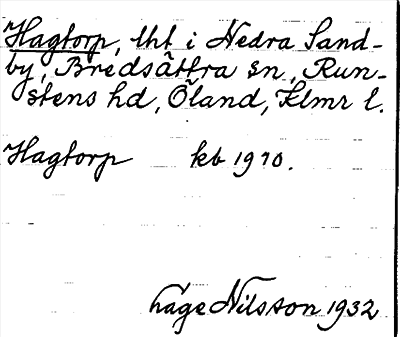 Hagtorp, lht i Nedra Sand-
by, Bredsättra sn, Run-
stens hd, Öland, Klmr l.
Hagtorp kb 1910.
håge Nilsson 1932